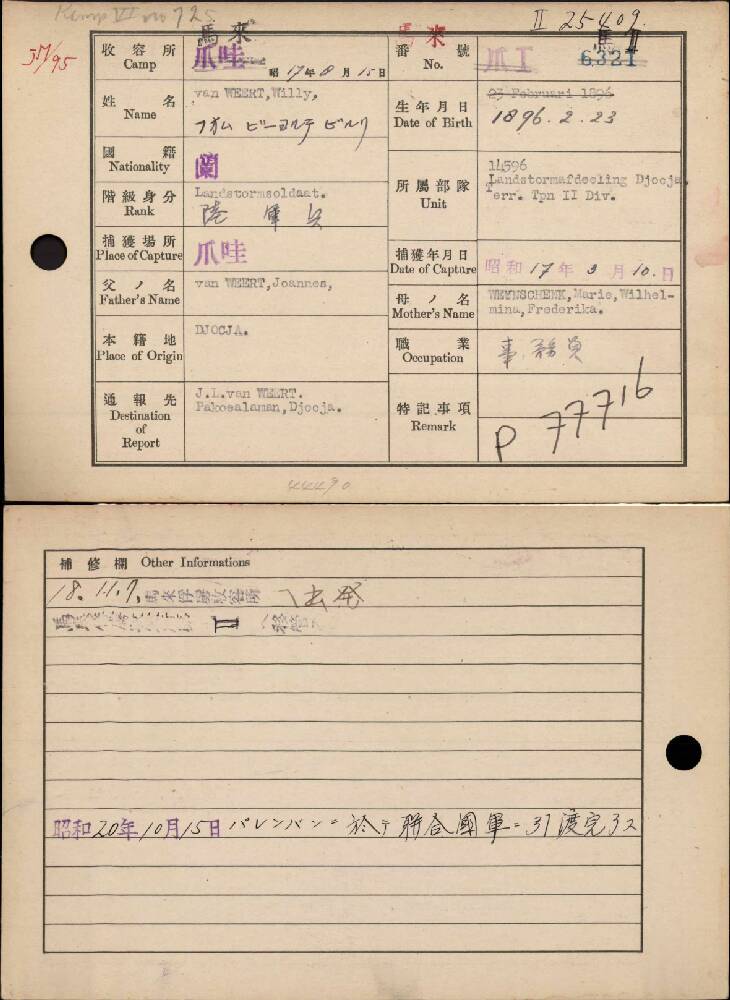 Kamp VI no 725
II 25409.
馬來
馬來
馬II
31/95
收容所
Camp
爪哇
昭17年8月15日
番號
No.
爪I
6321
姓名
Name
van WEERT,Willy,
生年月日
Date of Birth
23 Februari 1896
1896.2.23
國籍
Nationality
蘭
階級身分
Rank
Landstormsoldaat.
陸軍兵
所屬部隊
Unit
14596
Landstormafdeeling Djocja.
Terr. Tpn II Div.
捕獲場所
Place of Capture
爪哇
捕獲年月日
Date of Capture
昭和17年3月10.日
父ノ名
Father's Name
van WEERT,Joannes,
母ノ名
Mother's Name
WEYNSCHENK,Marie,Wilhel-
mina,Frederika.
本籍地
Place of Origin
DJOCJA.
職業
Occupation
事務員
通報先
Destination
of
Report
J.L.van WEERT.
Pakoealaman,Djocja.
特記事項
Remark
P 77716
44490
補修欄 Other Informations
18.11.7.馬来俘虜收容所へ出発
II
昭和20年10月15日パレンバンニ於テ聯合國軍ニ引渡完了ス